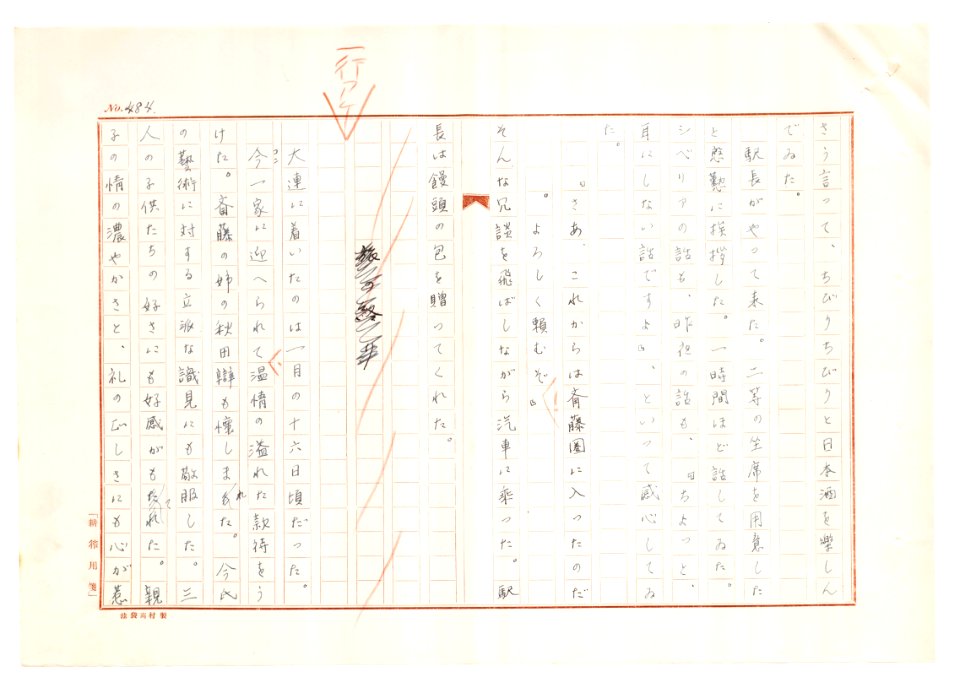 一行アケ
No. 484
さう言つて、ちびりちびりと日本酒を樂しん
でゐた。
駅長がやつて来た。二等の坐席を用意した
と慇懃に挨拶した。一時間ほど話してゐた。
シベリアの話も、昨夜の話も、『ちよつと、
耳にしない話ですよ』、といつて感心してゐ
た。
『さあ、これからは斎藤圏に入つたのだ
。よろしく頼むぞ』
そんな冗談を飛ばしながら汽車に乗つた。駅
長は饅頭の包を贈つてくれた。
大連に着いたのは一月の十六日頃だつた。
今一家に迎へられて温情の溢れた款待をう
コン
けた。斎藤の姉の秋田辯も懐しまれた。今氏
の藝術に対する立派な識見にも敬服した。三
人の子供たちの好さにも好感がもてた。親
子の情の濃やかさと、礼の正しさにも心が惹
「新弥用箋」